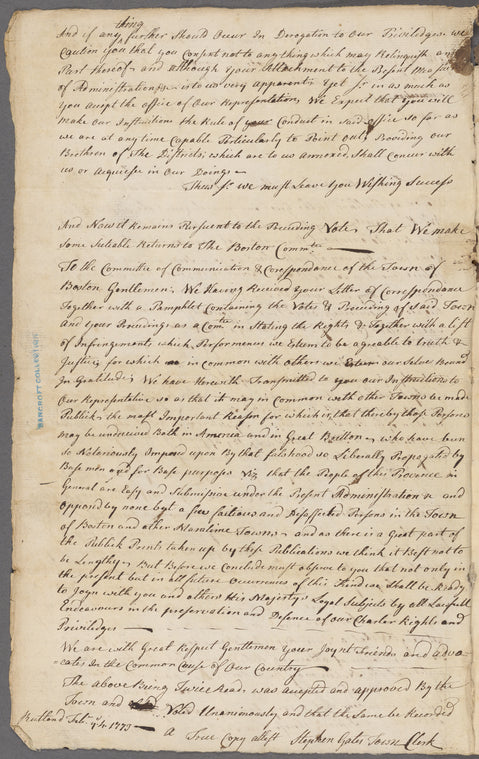 thing
And if any further Should Occur In Derogation to Our Priviledges we
Caution you that you Consent not to any thing which may Relinquish any
Part thereof and although your Attachment to the Present
of Administration is unto us very apparent yet Sr in as much as
you accept the office of Our Representative We Expect that you will
make Our Instructions the Rule of your Conduct in Said office so far as
we are at any time Capable Perticularly to Point out Providing our
Brethren of The Districts which are to us annexed Shall Concur with
us or Acquiesce in Our Doings
Thus Sr we must Leave you Wishing Success
And Now it Remains Persuent to the Preceding Vote, That We make
Some Suteable Returns to The Boston Committee
To the Committee of Communication & Corespondance of the Town of
Boston Gentlemen; We Having Received your Letter of Correspondance
Together with a Pamphlet Containing the Votes & Proceding of Said Town
And your Procedings as a Comtte in Stating the Rights & Together with a list
of Infringements which Performences we Esteem to be agreable to truth &
Justice, for which in common with others we Esteem our Selves Bound
In Gratitude; We have Herewith Transmitted to you our Instructions to
Our Representative so as that it may in Common with other Towns be made
Publick, the most Important Reason for which is, that thereby those Persons
may be undeceived Both in America and in Great Britton, who have been
so Notoriously Imposed upon By that falshood so Liberally Propogated by
Base men and for Base purposes Viz that the People of this Province in
General are Easy and Submissive under the Present Administration & and
Opposed by none but a few factious and Desaffected Persons in the Town
of Boston and other Maretime Towns, and as there is a Great part of
the Publick Prints taken up by these Publications we think it Best not to
be Lengthy, But Before we Conclude must observe to you that not only in
the present but in all future Ocurrences of this Kind we Shall be Ready
to Joyn with you and others His Majestys Loyal Subjects by all Lawfull
Endeavours in the preservation and Defence of our Charter Rights and
Priviledges
We are with Great Respect Gentlemen your Joynt Friends and advo-
-cates In the Common Cause of Our Country
The above Being Twice Read was accepted and approved By the
Town and Voted Unanimously and that the Same be Recorded
Rutland Feb. 1773
A True Copy attest Stephen Gates Town Clerk
BANCROFT COLLECTION